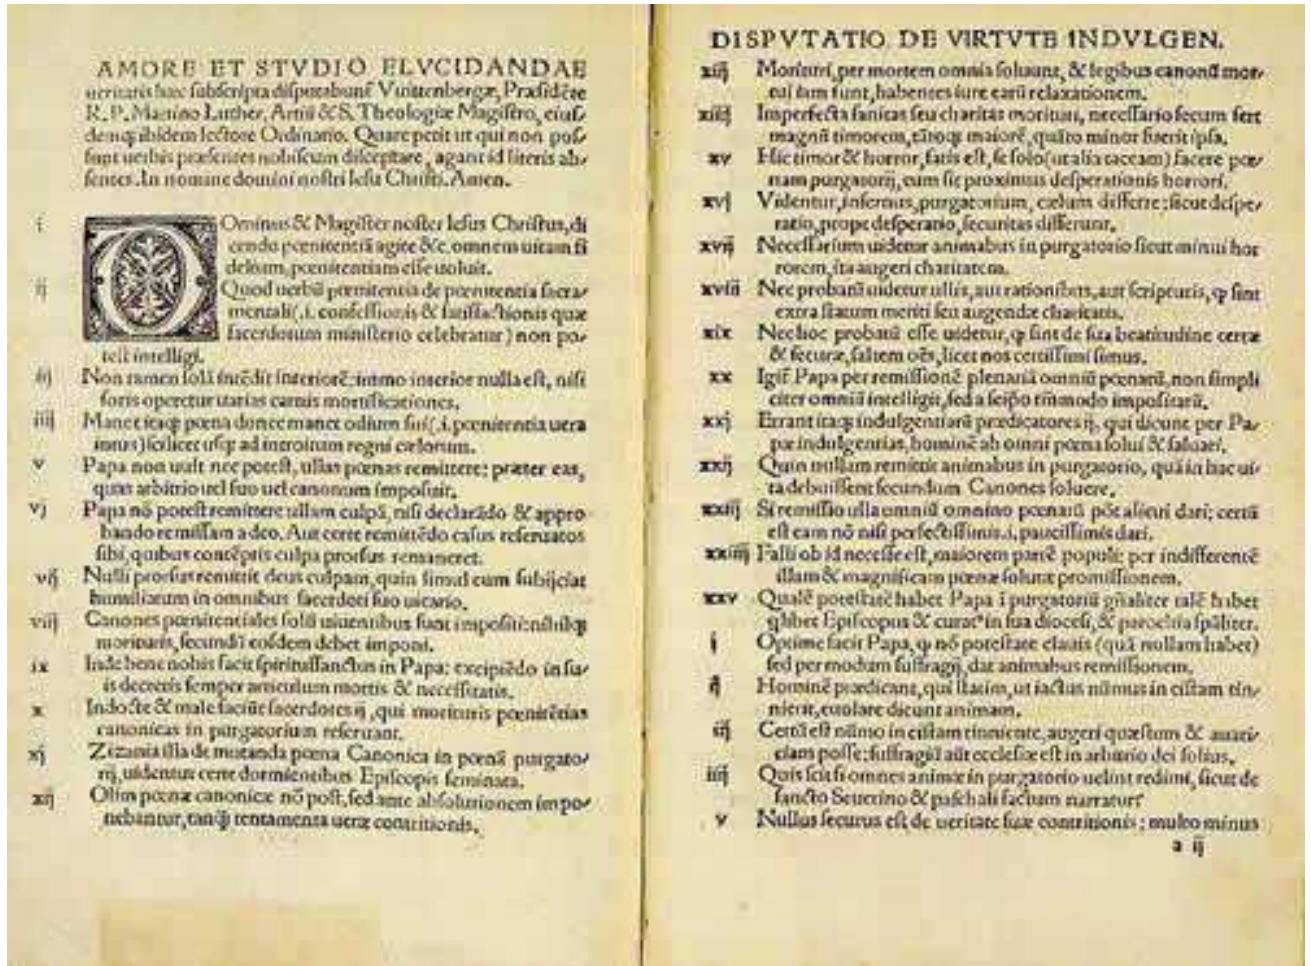 AMORE ET STVDIO ELVCIDANDAE
ueritatis hæc subscripta disputabunt Vuittenbergæ, Præsidẽte
R. P. Martino Luther, Artiũ & S. Theologiæ Magistro, eius/
demq; ibidem lectore Ordinario. Quare petit ut qui non pos/
sunt uerbis præsentes nobiscum disceptare, agant id literis ab/
sentes. In nomine domini nostri Iesu Christi. Amen.
i DOminus & Magister noster Iesus Christus, di
cendo pœnitentiã agite &c. omnem uitam fi
delium, pœnitentiam esse uoluit.
ij Quod uerbũ pœnitentia de pœnitentia sacra/
mentali(.i. confessionis & satisfactionis quæ
sacerdotum ministerio celebratur) non po/
test intelligi.
iij Non tamen solã intẽdit interiorẽ: immo interior nulla est, nisi
foris operetur uarias carnis mortificationes.
iiij Manet itaq; pœna donec manet odium sui(.i. pœnitentia uera
intus) scilicet usq; ad introitum regni cælorum.
v Papa non uult nec potest, ullas pœnas remittere: præter eas,
quas arbitrio uel suo uel canonum imposuit.
vj Papa nõ potest remittere ullam culpã, nisi declarãdo & appro
bando remissam a deo. Aut certe remittẽdo casus reseruatos
sibi, quibus contẽptis culpa prorsus remaneret.
vij Nulli prorsus remittit deus culpam, quin simul eum subijciat
humiliatum in omnibus sacerdoti suo uicario.
viij Canones pœnitentiales solũ uiuentibus sunt impositi: nihilq;
morituris, secundũ eosdem debet imponi.
ix Inde bene nobis facit spiritussanctus in Papa: excipiẽdo in su/
is decretis semper articulum mortis & necessitatis.
x Indocte & male faciũt sacerdotes ij, qui morituris pœnitẽtias
canonicas in purgatorium reseruant.
xj Zizania illa de mutanda pœna Canonica in pœnã purgato/
rij, uidentur certe dormientibus Episcopis seminata.
xij Olim pœnæ canonicæ nõ post, sed ante absolutionem impo/
nebantur, tanq̃ tentamenta ueræ contritionis.
DISPVTATIO DE VIRTVTE INDVLGEN.
xiij Morituri, per mortem omnia soluunt, & legibus canonũ mor/
tui iam sunt, habentes iure earũ relaxationem.
xiiij Imperfecta sanitas seu charitas morituri, necessario secum fert
magnũ timorem, tãtoq; maiorẽ, quãto minor fuerit ipsa.
xv Hic timor & horror, satis est, se solo (ut alia taceam) facere pœ/
nam purgatorij, cum sit proximus desperationis horrori.
xvj Videntur, infernus, purgatorium, cælum differre: sicut despe/
ratio, prope desperatio, securitas differunt.
xvij Necessarium uidetur animabus in purgatorio sicut minui hor
rorem, ita augeri charitatem.
xviij Nec probatũ uidetur ullis, aut rationibus, aut scripturis, q̃ sint
extra statum meriti seu augendæ charitatis.
xix Nec hoc probatũ esse uidetur, q̃ sint de sua beatitudine certæ
& securæ, saltem oẽs, licet nos certissimi simus.
xx Igit̃ Papa per remissionẽ plenariã omniũ pœnarũ, non simpli
citer omniũ intelligit, sed a seipo tm̃modo impositarũ.
xxj Errant itaq; indulgentiarũ prædicatores ij, qui dicunt per Pa/
pæ indulgentias, hominẽ ab omni pœna solui & saluari.
xxij Quin nullam remittit animabus in purgatorio, quã in hac ui/
ta debuissent secundum Canones soluere.
xxiij Si remissio ulla omniũ omnino pœnarũ põt alicui dari: certũ
est eam nõ nisi perfectissimis .i. paucissimis dari.
xxiiij Falli ob id necesse est, maiorem partẽ populi: per indifferentẽ
illam & magnificam pœnæ solutæ promissionem.
xxv Qualẽ potestatẽ habet Papa ĩ purgatoriũ gñaliter talẽ habet
q̃libet Episcopus & curat' in sua diocesi, & parochia sp̃aliter.
i Optime facit Papa, q̃ nõ potestate clauis (quã nullam habet)
sed per modum suffragij, dat animabus remissionem.
ij Hominẽ prædicant, qui statim, ut iactus nũmus in cistam tin/
nierit, euolare dicunt animam.
iij Certũ est nũmo in cistam tinniente, augeri quæstum & auari/
ciam posse: suffragiũ aũt ecclesiæ est in arbitrio dei solius.
iiij Quis scit si omnes animæ in purgatorio uelint redimi, sicut de
sancto Seuerino & paschali factum narratur?
v Nullus securus est de ueritate suæ contritionis: multo minus
a ij